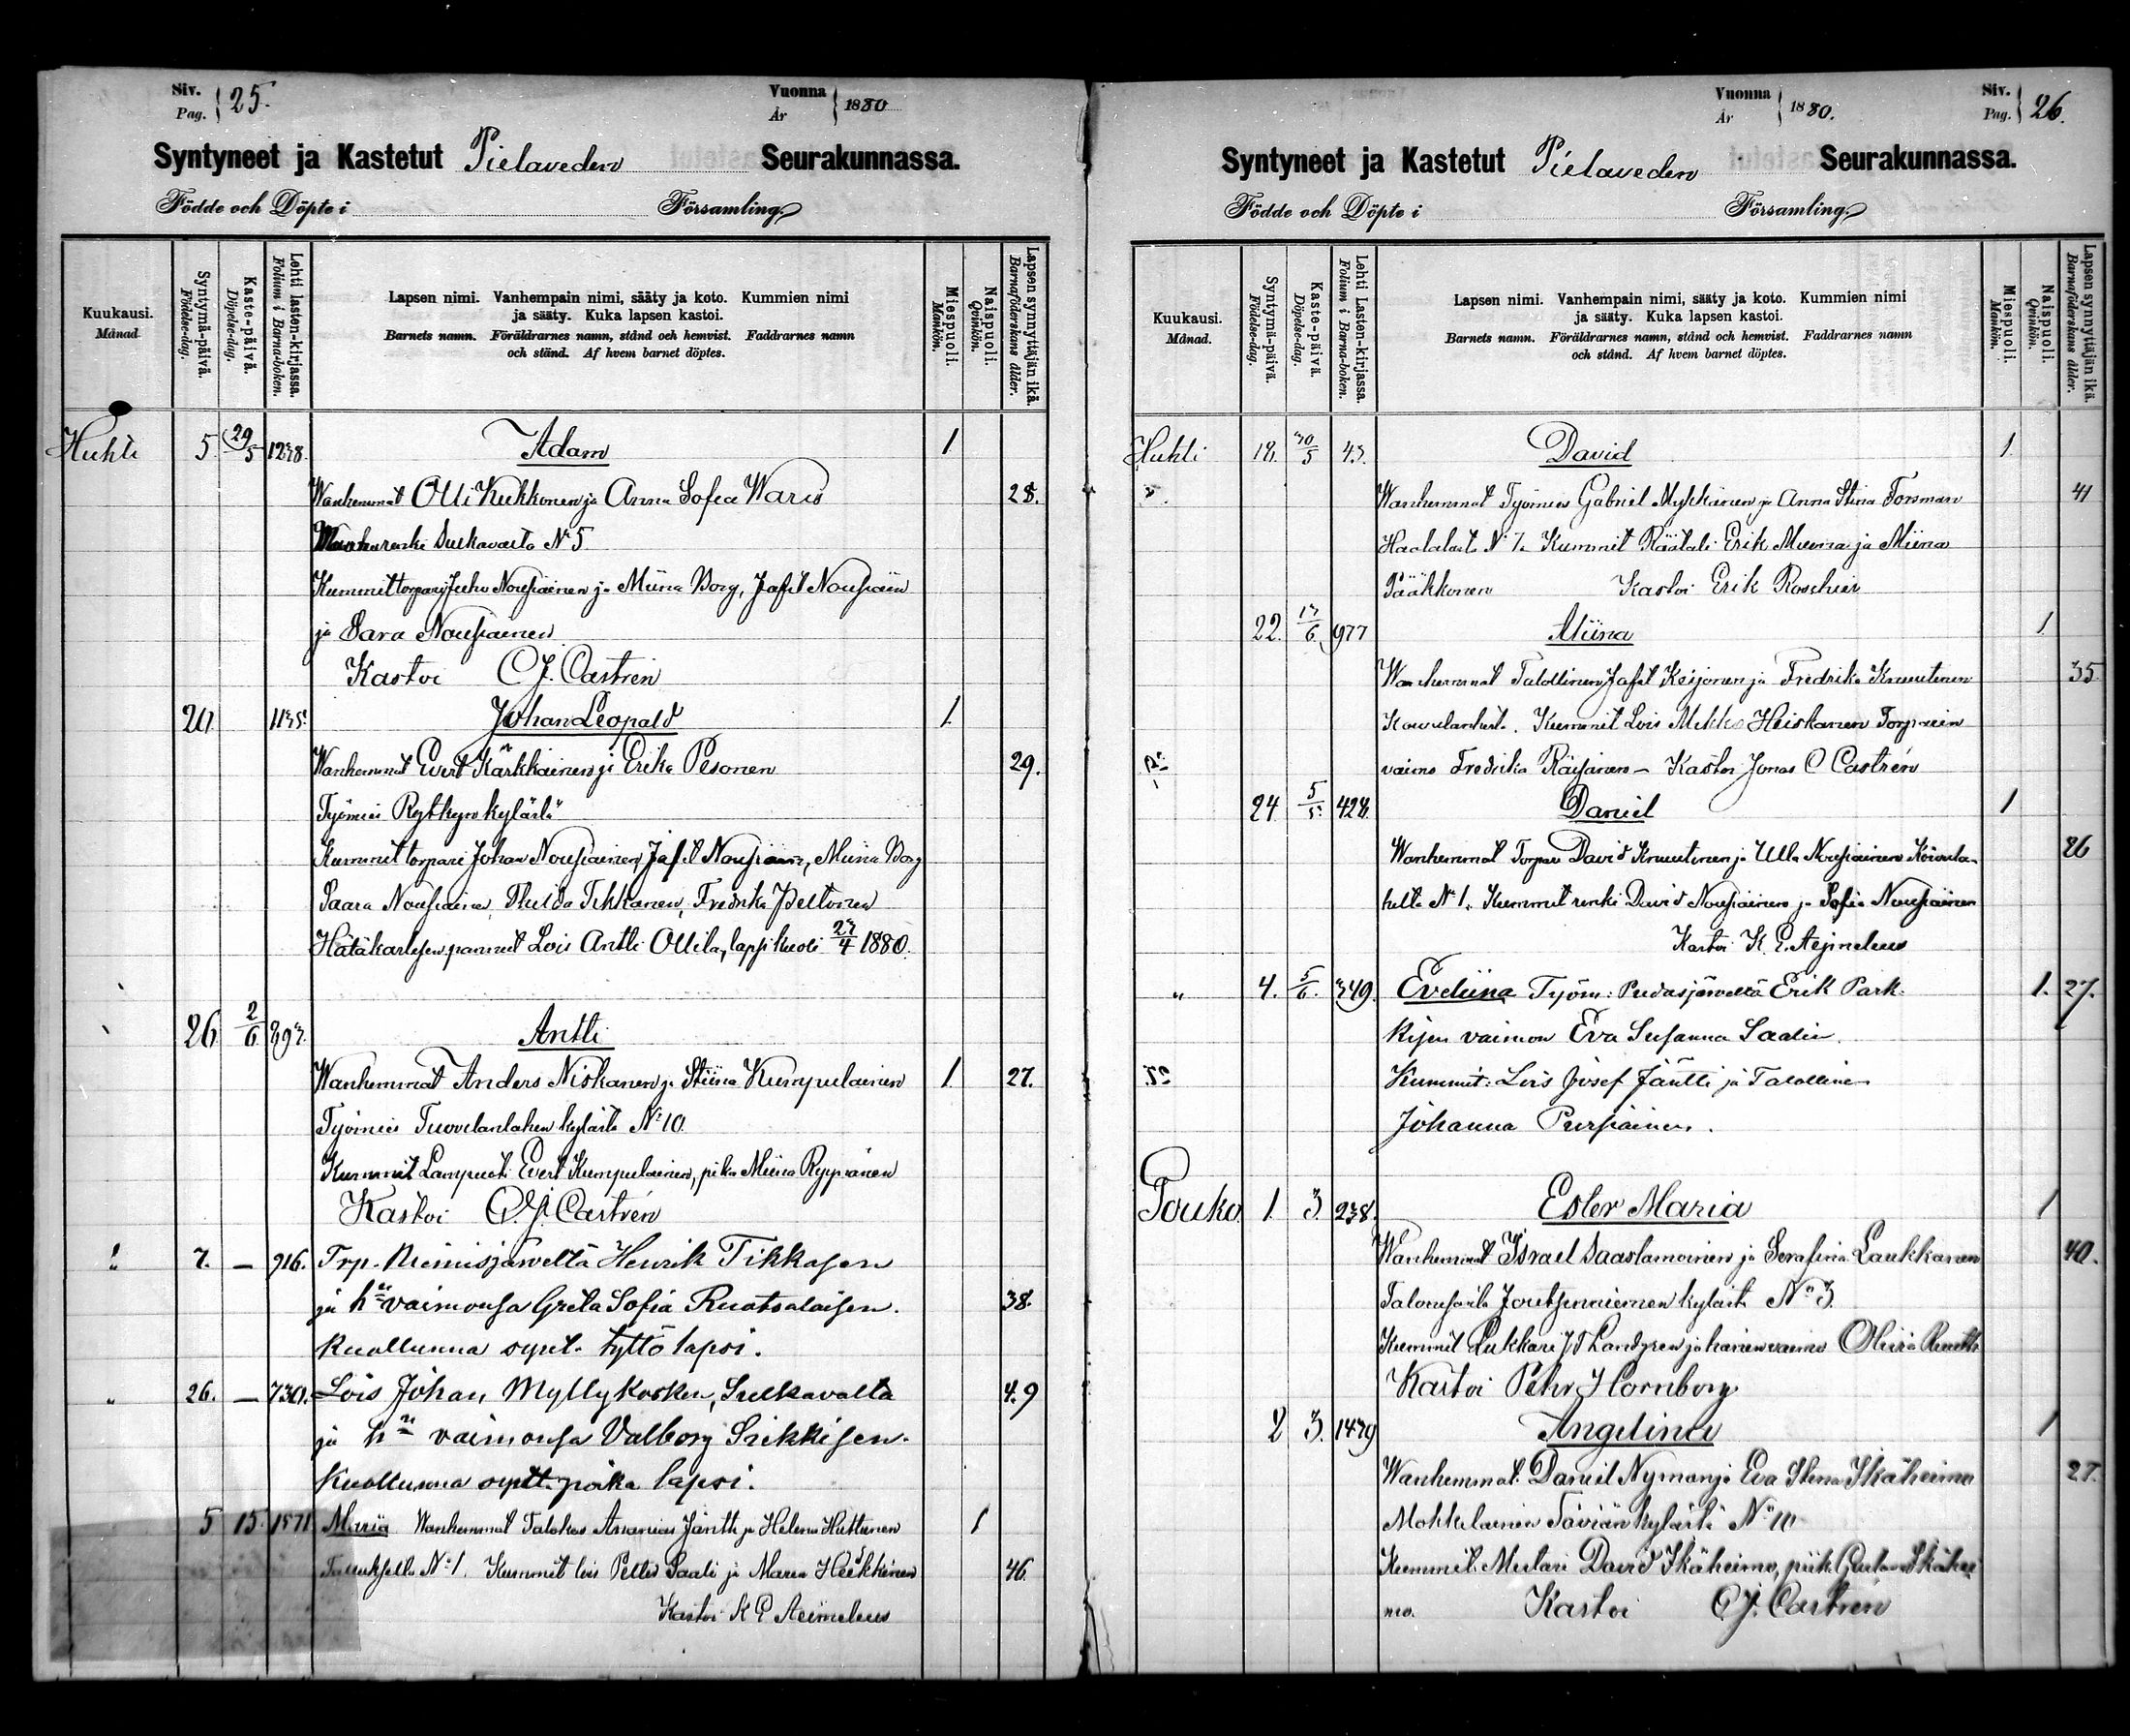 Siv. Pag. 25. Vuonna År 1880
Syntyneet ja Kastetut Pielaveden Seurakunnassa.
Födde och Döpte i Församling.
Kuukausi. Månad. Syntymä-päivä. Födelse-dag. Kaste-päivä. Döpelse-dag. Lehti lasten-kirjassa. Folium i Barna-boken. Lapsen nimi. Vanhempain nimi, sääty ja koto. Kummien nimi ja sääty. Kuka lapsen kastoi. Barnets namn. Föräldrarnes namn, stånd och hemvist. Faddrarnes namn och stånd. Af hvem barnet döptes. Miespuoli. Mankön. Naispuoli. Qvinkön. Lapsen synnyttäjän ikä. Barnaföderskans ålder.
Huhti 5 29/5 1238. Adam 1
Wanhemmat Olli Kukkonen ja Anna Sofia Waris 28.
Sulkavalta N 5
Kummit torpari Juho Nousiainen ja Miina Borg, Jafet Nousiain
ja Sara Nousiainen
Kastoi C J. Castrén
20. 1135. Johan Leopald 1.
Wanhemmat Evert Kärkkäinen ja Erika Pesonen 29.
Työmies Rytkyn kylästä
Kummit torpari Johan Nousiainen, Jafet Nousiain, Miina Borg
Saara Nousiainen, Tikkanen, Fredrika Peltonen
Hätäkasteen pannut Lois Antti Ollila, lapsi kuoli 27/4 1880.
26 2/6 Antti
Wanhemmat Anders Niskanen ja Stiina Kumpulainen 1 27.
Työmies Tuovilanlahen kylästä N:10.
Kummit Lampuoti Evert Kumpulainen, pika Miina Ryppänen
Kastoi C. J. Castrén
" 7. — 916. Trp. Niemisjärveltä Henrik Tikkasen
ja hn vaimonsa Greta Sofia Ruotsalaisen. 38.
Kuollunna synt. tyttö lapsi.
" 26. — 730. Lois Johan Myllykosken, Sulkavalta 49
ja hn vaimonsa Valborg Sikkisen.
Kuollunna synt. poika lapsi.
5 15. 1571 Maria Wanhemmat Talokas Ananias Jäntti ja Helena Huttunen 1
N:1. Kummit lois Petter Saali ja Maria Heikkinen 46
Kastoi K E Aejmelaeus
Vuonna År 1880. Siv. Pag. 26.
Syntyneet ja Kastetut Pielaveden Seurakunnassa.
Födde och Döpte i Församling.
Kuukausi. Månad. Syntymä-päivä. Födelse-dag. Kaste-päivä. Döpelse-dag. Lehti Lasten-kirjassa. Folium i Barna-boken. Lapsen nimi. Vanhempain nimi, sääty ja koto. Kummien nimi ja sääty. Kuka lapsen kastoi. Barnets namn. Föräldrarnes namn, stånd och hemvist. Faddrarnes namn och stånd. Af hvem barnet döptes. Miespuoli. Mankön. Naispuoli. Qvinkön. Lapsen synnyttäjän ikä. Barnaföderskans ålder.
Huhti 18. 30/5 43. David 1.
Wanhemmat Työmies Gabriel Mykkänen ja Anna Stina Forsman 41
N:7. Kummit Räätali Erik Muona ja Miina
Pääkkonen Kastoi Erik Roschier
22. 13/6. 977 Miina 1.
Wanhemmat Talollinen Jafet Keijonen ja Fredrika Knuutinen 35
Kummit Lois Mikko Heiskanen Torparin
vaimo Fredrika Räisänen — Kastoi Jonas C Castrén
24 5/5 428. Daniel 1
Wanhemmat Torpari David Knuutinen ja Ulla Nousiainen Koivula- 26
helta N:1. Kummit renki David Nousiainen ja Sofia Nousiainen
Kastoi K. E. Aejmelaeus
" 4. 5/6. 349. Eveliina Työm: Pudasjärveltä Erik Park- 1. 27.
kisen vaimon Eva Susanna Saalin.
Kummit: Lois Josef Jäntti ja Talollinen
Johanna Pursiainen.
Touko. 1. 3. 238. Ester Maria 1
Wanhemmat Israel Saastamoinen ja Serafina Laukkanen 40.
Joutsenniemen kylästä N:o 3.
Kummit Lukkari Landgren ja hänen vaimo Olivia
Kastoi Pehr Hornborg
2 3. 1479 Angelina 1
Wanhemmat Daniel Nyman ja Eva Stina Ikäheimo 27.
Tavian kylästä N:o 10
Kummit Mutari David Ikäheimo, piika Ikähei
mo. Kastoi C J. Castrén